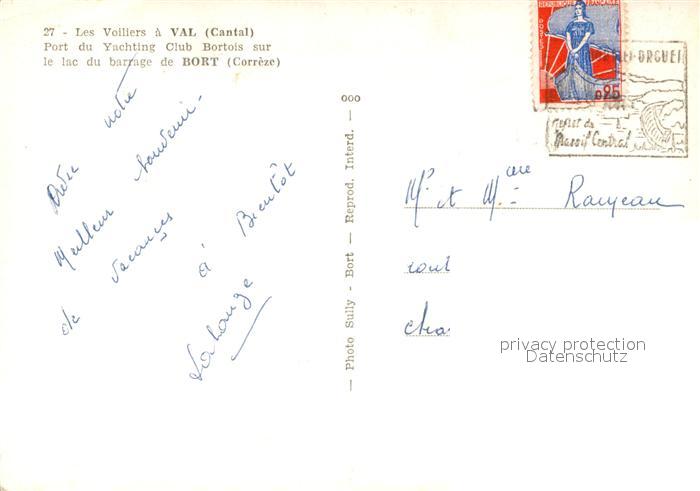 27 - Les Voiliers à VAL (Cantal)
Port du Yachting Club Bortois sur
le lac du barrage de BORT (Corrèze)
notre
Meilleur souvenir -
de vacances
à Bientôt
— Photo Sully - Bort — Reprod. Interd. — ooo
REPUBLIQUE FRANÇAISE
POSTES
0,25
Massif Central
Mr et Mme
privacy protection
Datenschutz